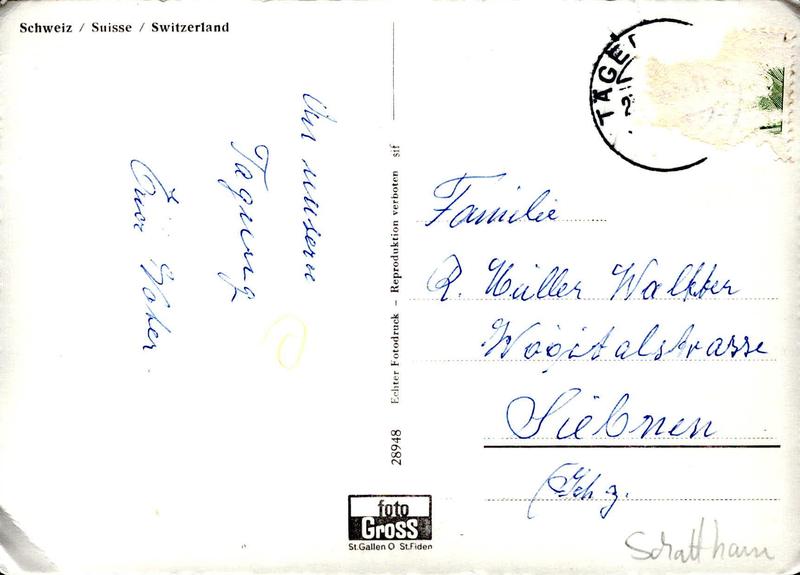 Schweiz / Suisse / Switzerland
An unsern
Tagung
Euer Vater
28948 Echter Fotodruck – Reproduktion verboten sif
TÄGE
2
Familie
R. Müller Walkter
Wägitalstrasse
Siebnen
(Schz.
foto
Gross
St.Gallen O St.Fiden